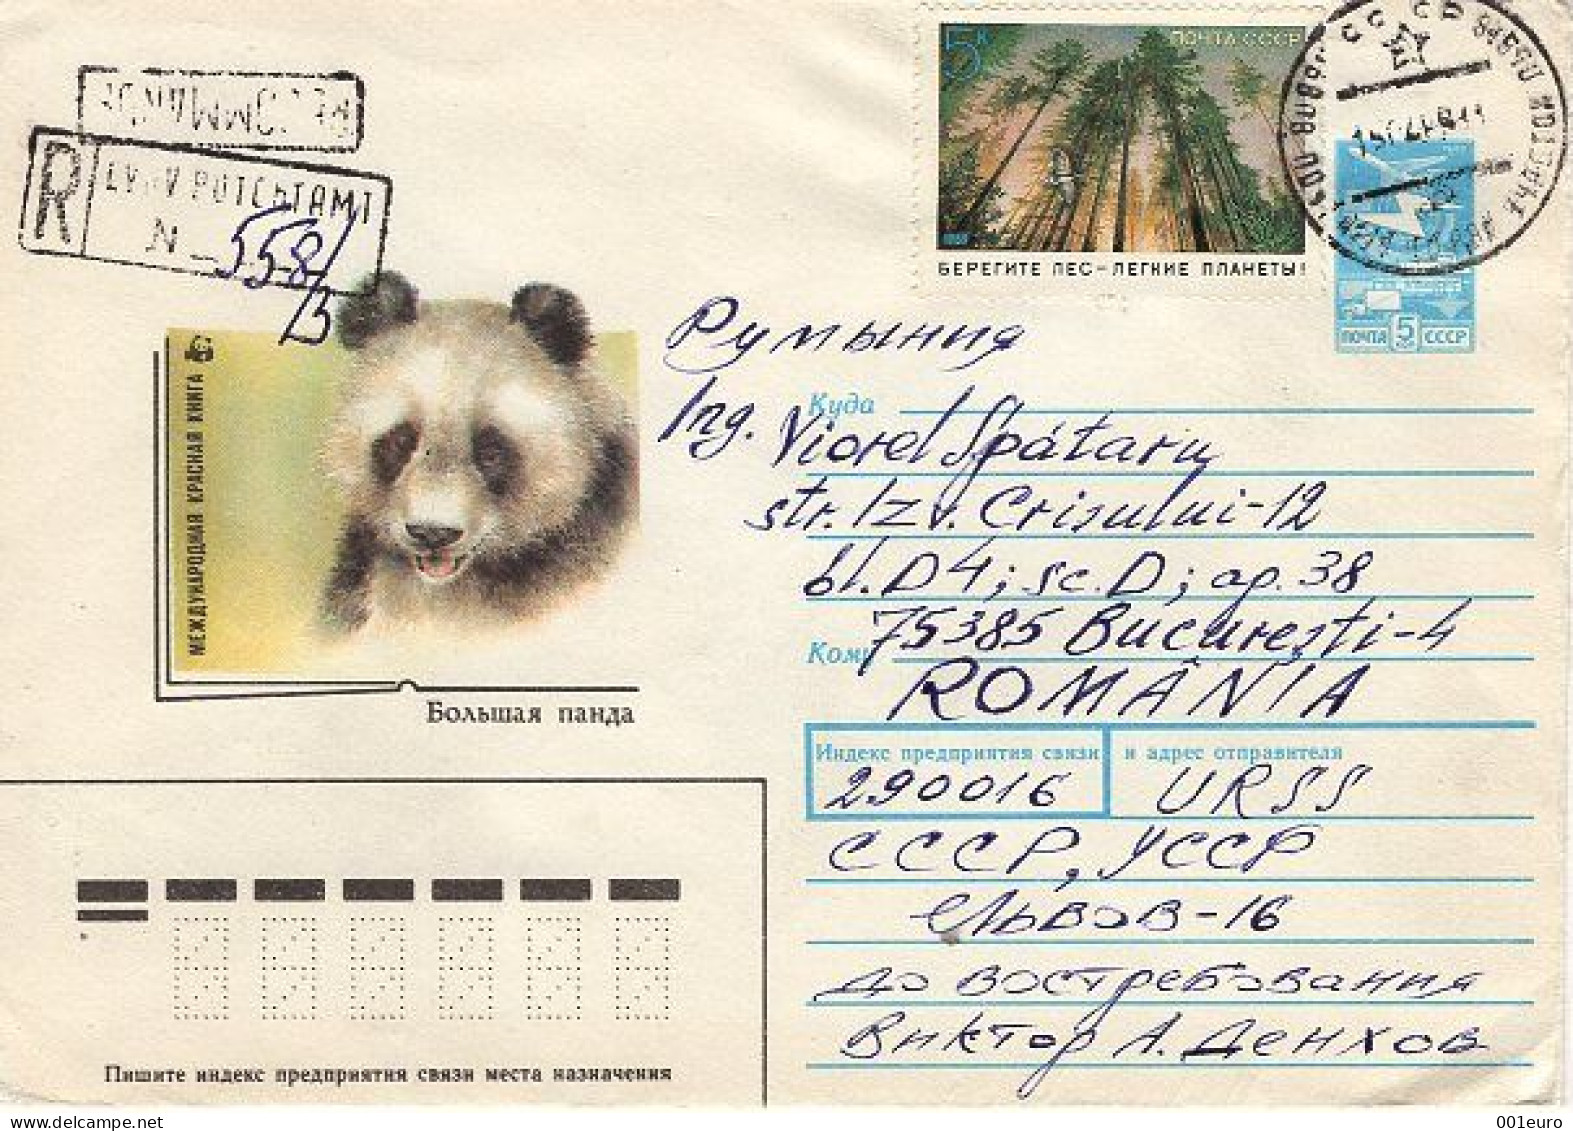 5к
ПОЧТА СССР
БЕРЕГИТЕ ЛЕС – ЛЕГКИЕ ПЛАНЕТЫ!
СССР
R
N 558/3
ПОЧТА 5 СССР
Румыния
Куда
Ing. Viorel Spátaru
str. Izv. Crisului-12
bl. D4; sc. D; ap. 38
75385 Bucureşti-4
Кому
ROMÂNIA
МЕЖДУНАРОДНАЯ КРАСНАЯ КНИГА
Большая панда
Индекс предприятия связи и адрес отправителя
290016 URSS
СССР, УССР
Львов-16
до востребования
Виктор А. Денхов
Пишите индекс предприятия связи места назначения
https://www.delcampe.net
001euro